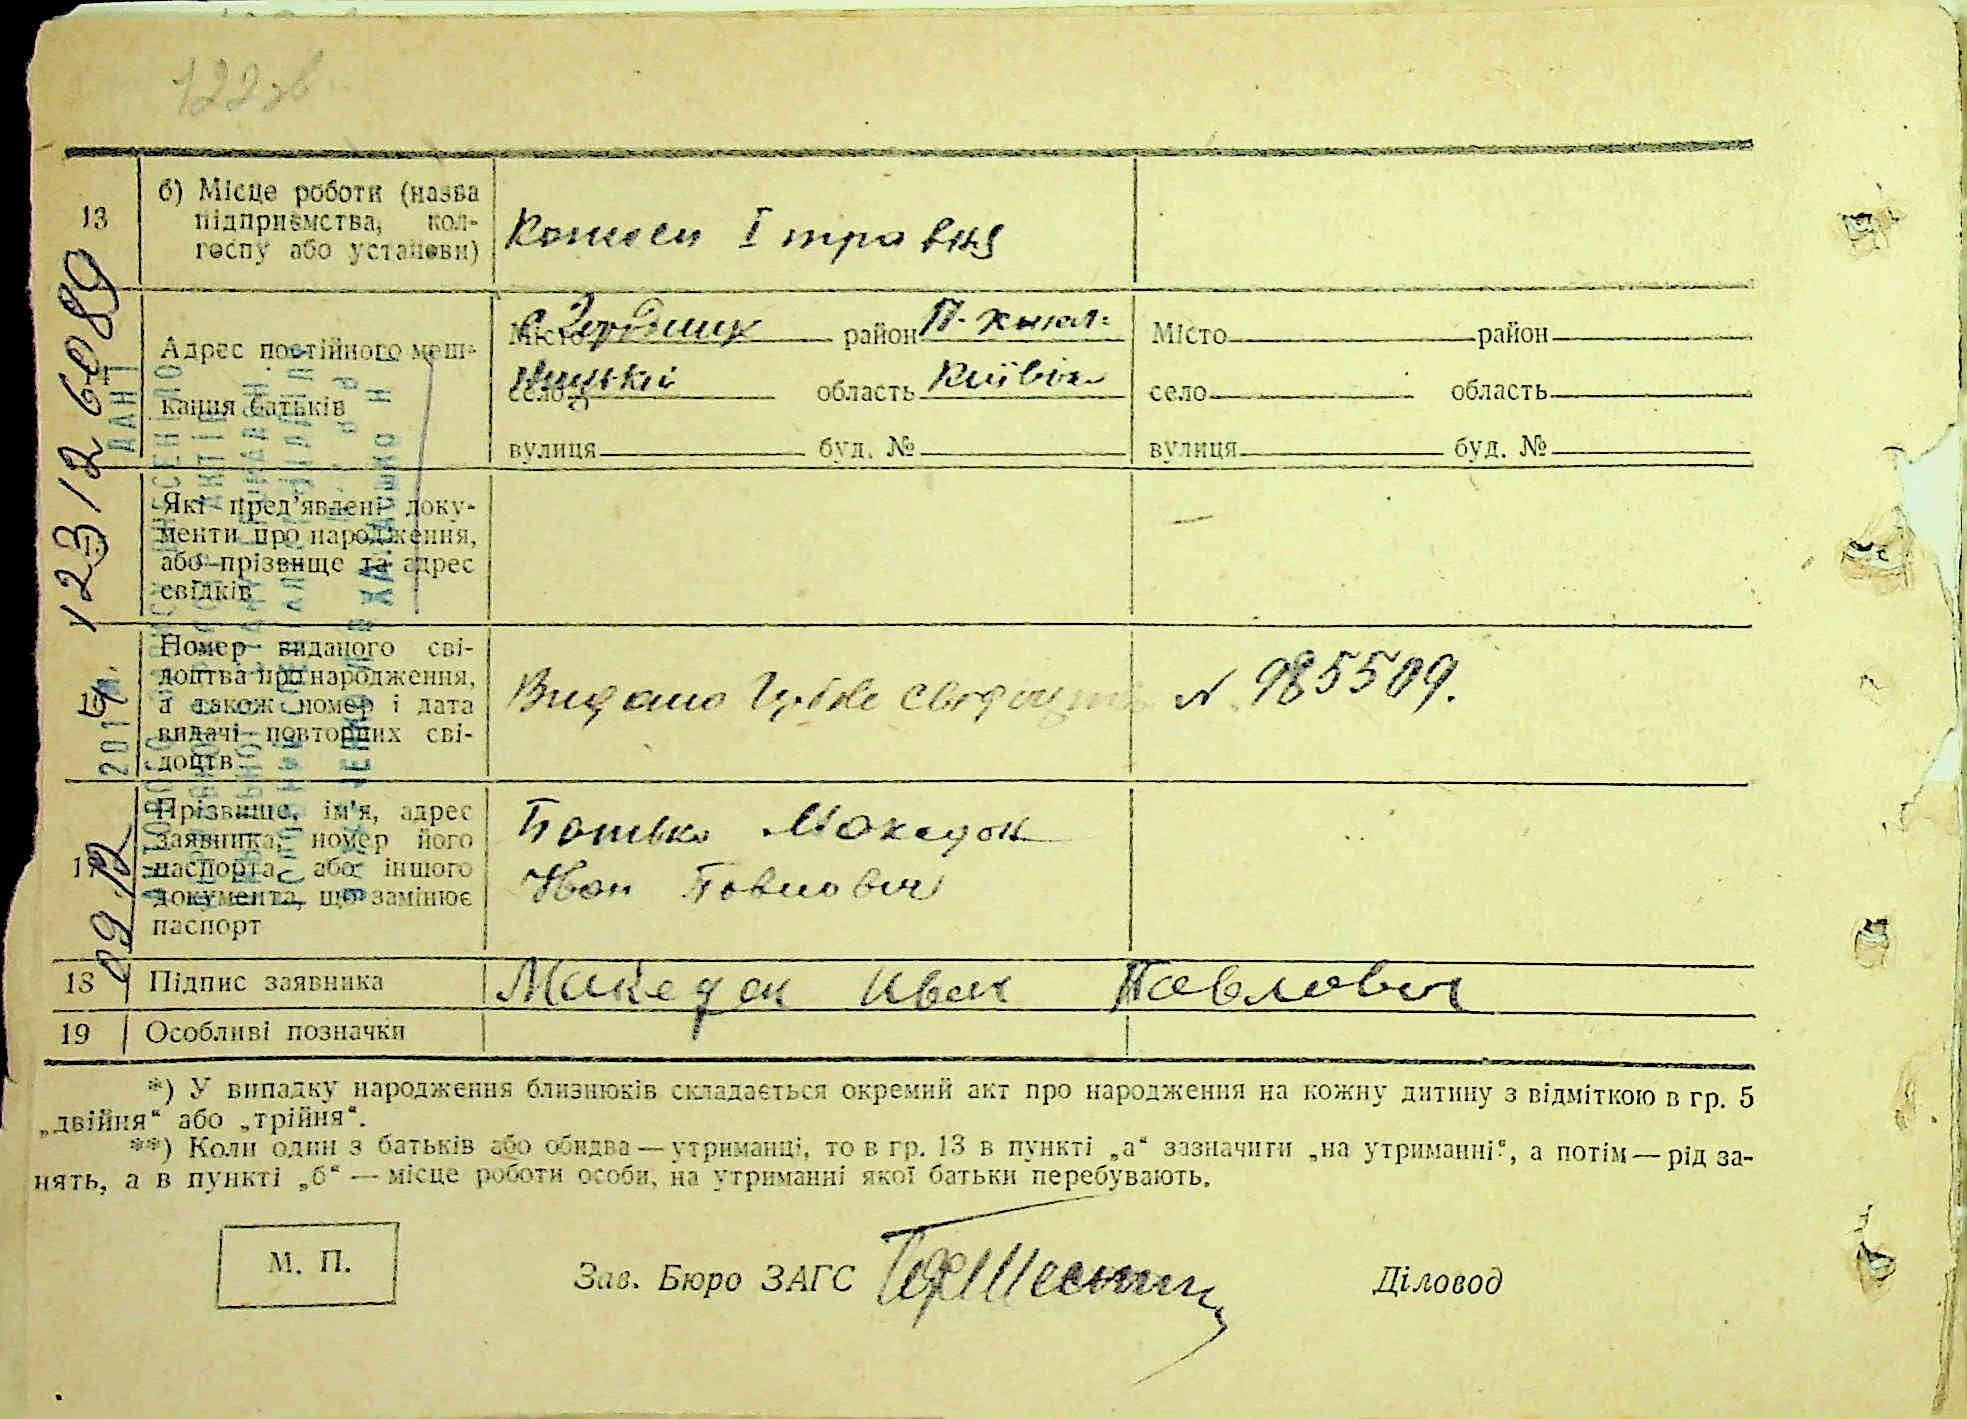 122 зв
13
б) Місце роботи (назва
підприємства, кол-
госпу або установи)
I травня
Адрес постійного меш-
кання батьків
Місто район П-Хмел-
ницький
село область Київськ
вулиця буд. №
Місто район
село область
вулиця буд. №
Які пред'явлені доку-
менти про народження,
або прізвище та адрес
свідків
Номер виданого сві-
доцтва про народження,
а також номер і дата
видачі повторних сві-
доцтв
Видано N 985509.
17
Прізвище, ім'я, адрес
заявника, номер його
паспорта або іншого
документа, що замінює
паспорт
Батько Македон
Иван Павлович
18 Підпис заявника
Македон Иван Павлович
19 Особливі позначки
*) У випадку народження близнюків складається окремий акт про народження на кожну дитину з відміткою в гр. 5
„двійня“ або „трійня“.
**) Коли один з батьків або обидва — утриманці, то в гр. 13 в пункті „а“ зазначити „на утриманні“, а потім — рід за-
нять, а в пункті „б“ — місце роботи особи, на утриманні якої батьки перебувають.
М. П.
Зав. Бюро ЗАГС
Діловод
12312 6089
09.12